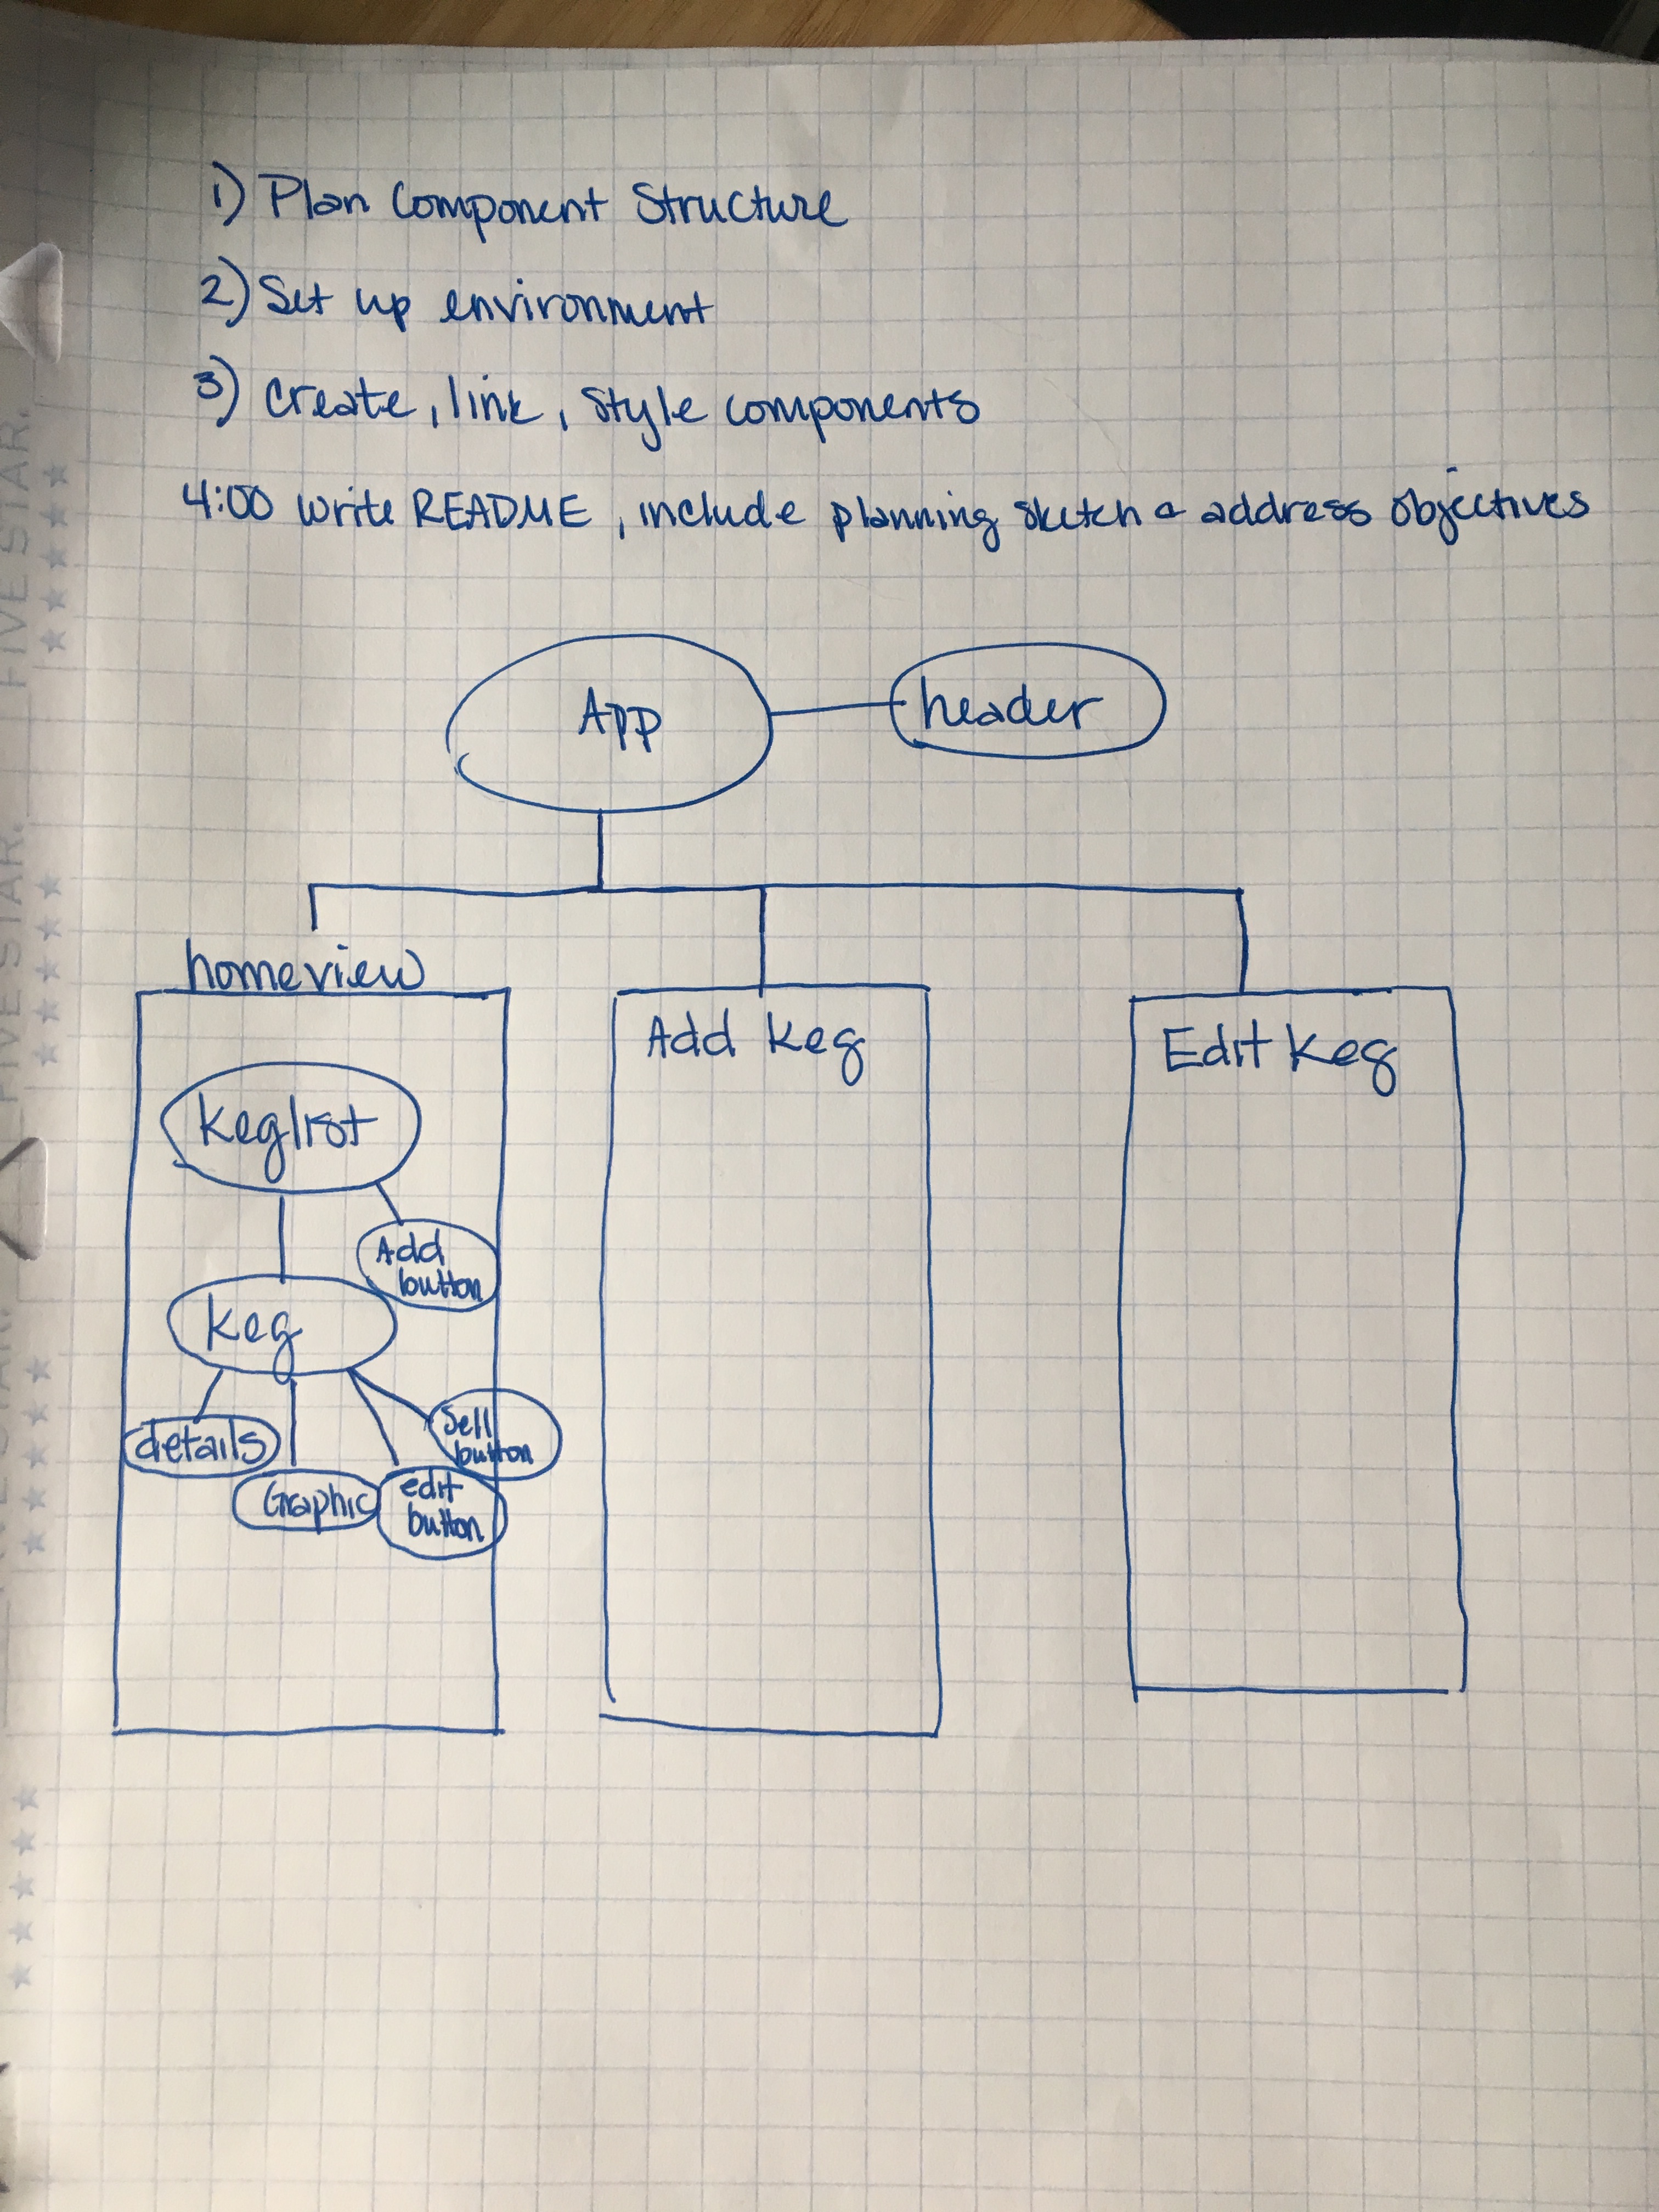 1) Plan Component Structure
2) Set up environment
3) create, link, style components
4:00 write README, include planning sketch & address objectives
App
header
homeview
Add Keg
Edit Keg
Keglist
Add
button
Keg
details
Graphic
edit
button
Sell
button
FIVE STAR.
FIVE STAR.